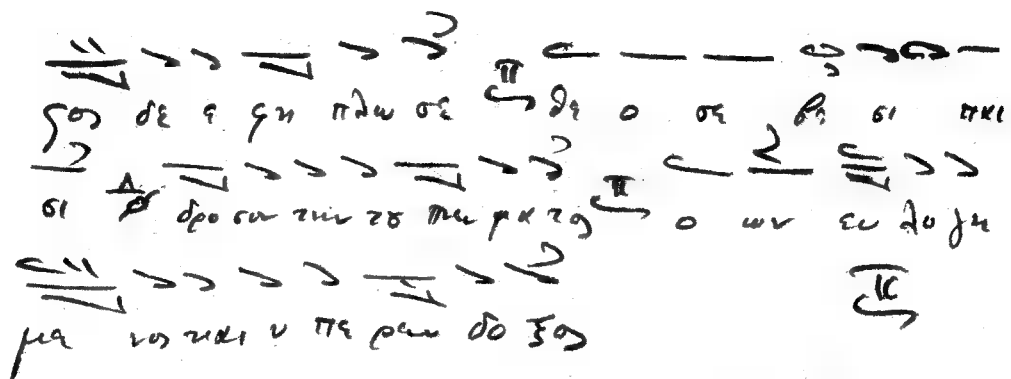 ρος δε ε φη πλω σε θε ο σε βε σι και
σι δρο σον την του πνευ μα τος ο ων ευ λο γη
με νος και υ πε ρεν δο ξος